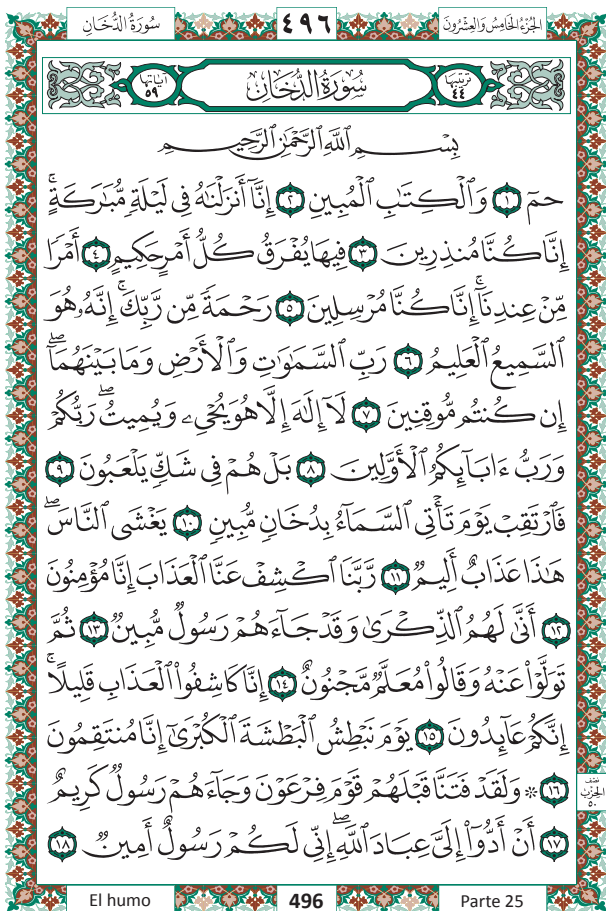 الجُزْءُ الخَامِسُ وَالعِشْرُونَ ٤٩٦ سُورَةُ الدُّخَانِ
تَرْتِيبُهَا ٤٤ سُورَةُ الدُّخَانِ آيَاتُهَا ٥٩
بِسْمِ ٱللَّهِ ٱلرَّحْمَٰنِ ٱلرَّحِيمِ
حمٓ ١ وَٱلْكِتَٰبِ ٱلْمُبِينِ ٢ إِنَّآ أَنزَلْنَٰهُ فِى لَيْلَةٍ مُّبَٰرَكَةٍۚ
إِنَّا كُنَّا مُنذِرِينَ ٣ فِيهَا يُفْرَقُ كُلُّ أَمْرٍ حَكِيمٍ ٤ أَمْرًا
مِّنْ عِندِنَآۚ إِنَّا كُنَّا مُرْسِلِينَ ٥ رَحْمَةً مِّن رَّبِّكَۚ إِنَّهُۥ هُوَ
ٱلسَّمِيعُ ٱلْعَلِيمُ ٦ رَبِّ ٱلسَّمَٰوَٰتِ وَٱلْأَرْضِ وَمَا بَيْنَهُمَآۖ
إِن كُنتُم مُّوقِنِينَ ٧ لَآ إِلَٰهَ إِلَّا هُوَ يُحْىِۦ وَيُمِيتُۖ رَبُّكُمْ
وَرَبُّ ءَابَآئِكُمُ ٱلْأَوَّلِينَ ٨ بَلْ هُمْ فِى شَكٍّ يَلْعَبُونَ ٩
فَٱرْتَقِبْ يَوْمَ تَأْتِى ٱلسَّمَآءُ بِدُخَانٍ مُّبِينٍ ١٠ يَغْشَى ٱلنَّاسَۖ
هَٰذَا عَذَابٌ أَلِيمٌ ١١ رَّبَّنَا ٱكْشِفْ عَنَّا ٱلْعَذَابَ إِنَّا مُؤْمِنُونَ
١٢ أَنَّىٰ لَهُمُ ٱلذِّكْرَىٰ وَقَدْ جَآءَهُمْ رَسُولٌ مُّبِينٌ ١٣ ثُمَّ
تَوَلَّوْا۟ عَنْهُ وَقَالُوا۟ مُعَلَّمٌ مَّجْنُونٌ ١٤ إِنَّا كَاشِفُوا۟ ٱلْعَذَابِ قَلِيلًاۚ
إِنَّكُمْ عَآئِدُونَ ١٥ يَوْمَ نَبْطِشُ ٱلْبَطْشَةَ ٱلْكُبْرَىٰٓ إِنَّا مُنتَقِمُونَ
١٦ ۞ وَلَقَدْ فَتَنَّا قَبْلَهُمْ قَوْمَ فِرْعَوْنَ وَجَآءَهُمْ رَسُولٌ كَرِيمٌ
نصف الحزب ٥٠
١٧ أَنْ أَدُّوٓا۟ إِلَىَّ عِبَادَ ٱللَّهِۖ إِنِّى لَكُمْ رَسُولٌ أَمِينٌ ١٨
El humo 496 Parte 25